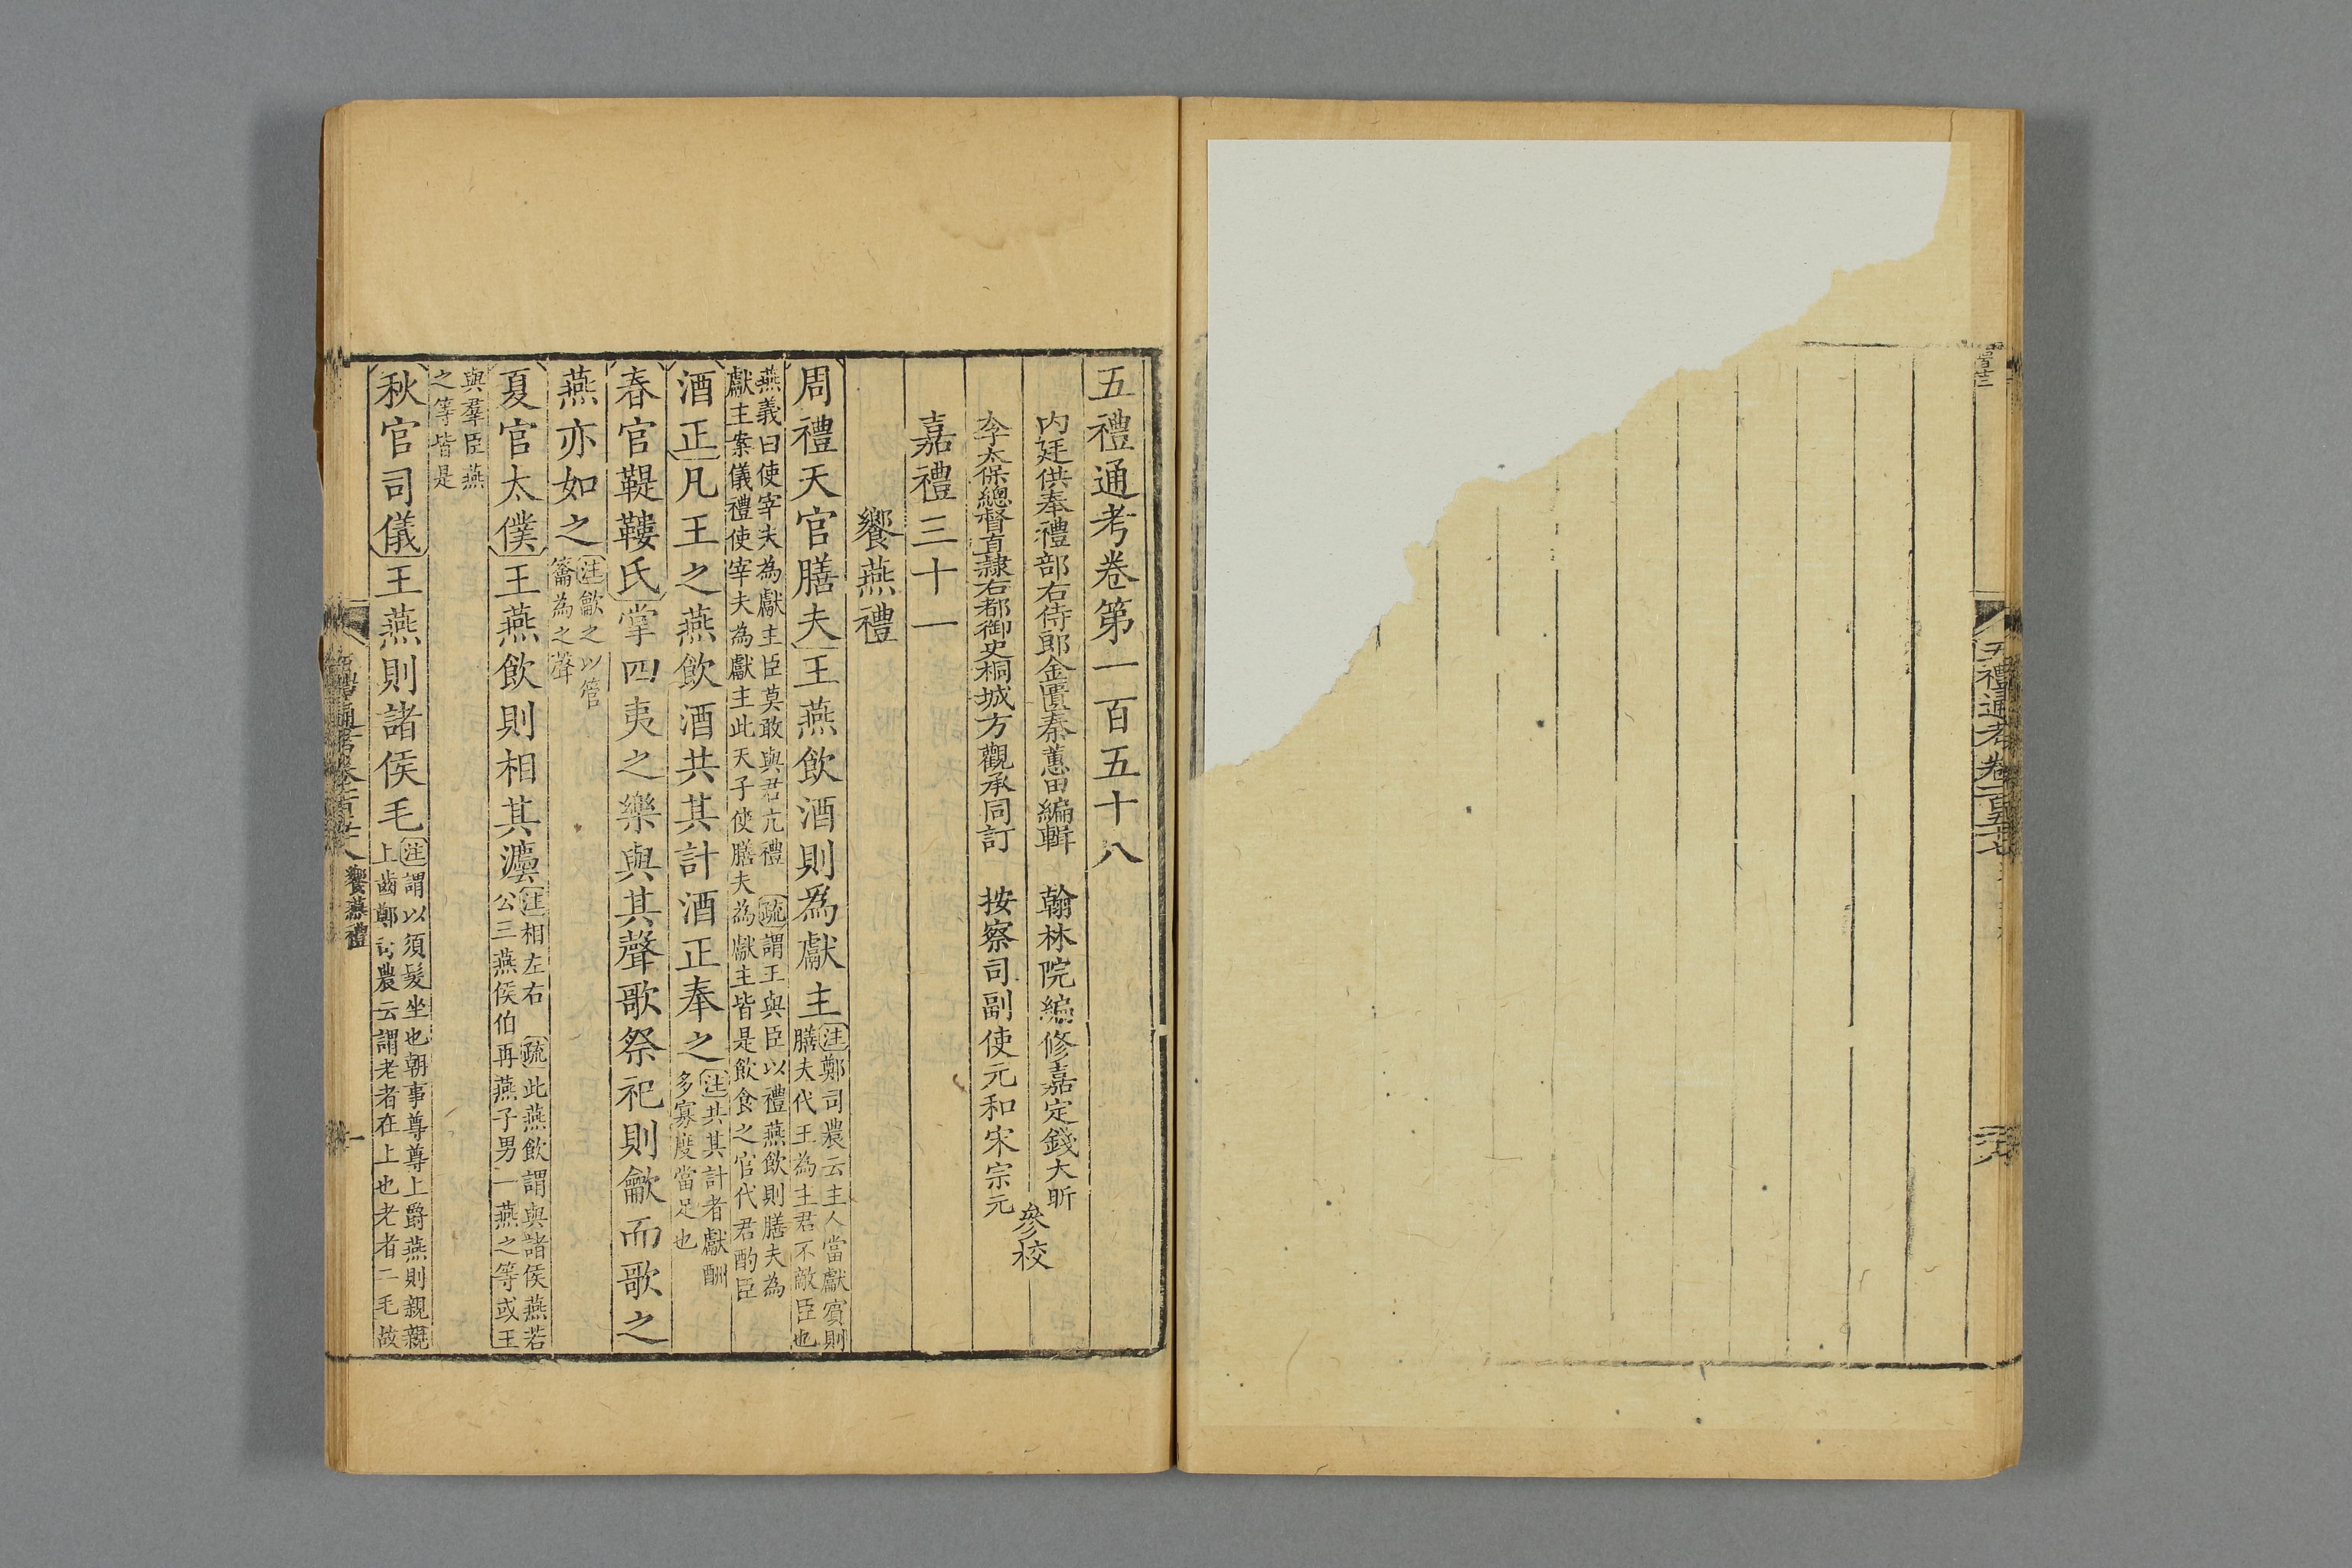 五禮通考卷一百五十七
五禮通考卷第一百五十八
内廷供奉禮部右侍郎金匱秦蕙田編輯　翰林院編修嘉定錢大昕
李太保總督直隷右都御史桐城方觀承同訂　按察司副使元和宋宗元
參校
嘉禮三十一
饗燕禮
周禮天官膳夫王燕飲酒則爲獻主
注鄭司農云主人當獻賓則
膳夫代王為主君不敵臣也
燕義曰使宰夫為獻主臣莫敢與君亢禮　疏謂王與臣以禮燕飲則膳夫為
獻主案儀禮使宰夫為獻主此天子使膳夫為獻主皆是飲食之官代君酌臣
酒正凡王之燕飲酒共其計酒正奉之
注共其計者獻酬
多寡度當足也
春官鞮鞻氏掌四夷之樂與其聲歌祭祀則龡而歌之
燕亦如之
注龡之以管
籥為之聲
夏官太僕王燕飲則相其灋
注相左右　疏此燕飲謂與諸侯燕若
公三燕侯伯再燕子男一燕之等或王
與羣臣燕
之等皆是
秋官司儀王燕則諸侯毛
注謂以須髮坐也朝事尊尊上爵燕則親親
上齒鄭司農云謂老者在上也老者二毛故
饗燕禮
一